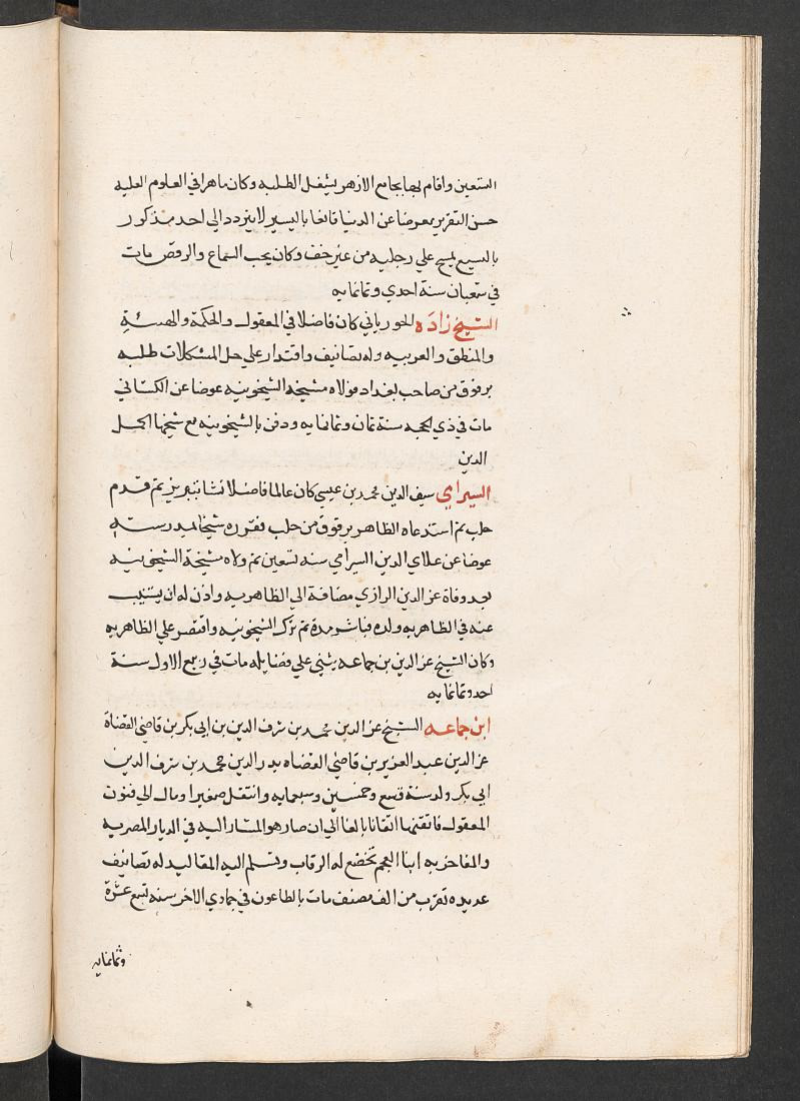 التسعين واقام بها بجامع الازهر يشغل الطلبه وكان ماهرا في العلوم العليه
حسن التقرير معرضا عن الدنيا قانعا باليسير لا يتردد الي احد مذكور
بالتسيع يمسح علي رجليه من غير خف وكان يحب السماع والرقص مات
في شعبان سنة احدي وثمانمايه
الشيخ زاده الخورياني كان فاضلا في المعقول والحكمة والهيئة
والمنطق والعربيه وله تصانيف واقتدار علي حل المشكلات طلبه
برقوق من صاحب بغداد فولاه مشيخة الشيخونيه عوضا عن الكستاني
مات في ذي الحجه سنة ثمان وثمانمايه ودفن بالشيخونيه مع شيخها اكمل
الدين
السيراي سيف الدين محمد بن عيسي كان عالما فاضلا نشا بتبريز ثم قدم
حلب ثم استدعاه الظاهر برقوق من حلب فقرره شيخا بمدرسته
عوضا عن علاي الدين السيرامي سنه تسعين ثم ولاه مشيخة الشيخونيه
بعد وفاة عز الدين الرازي مضافة الي الظاهريه واذن له ان يستنيب
عنه في الظاهريه ولده فباشر مدة ثم ترك الشيخونيه واقتصر علي الظاهريه
وكان الشيخ عز الدين بن جماعه يثني علي فضايله مات في ربيع الاول سنة
احد وثمانمايه
ابن جماعه الشيخ عز الدين محمد بن شرف الدين بن ابي بكر بن قاضي القضاة
عز الدين عبد العزيز بن قاضي القضاه بدر الدين محمد بن شرف الدين
ابي بكر ولد سنة تسع وخمسين وسبعمايه وانتقل صغيرا ومال الي فنون
المعقول فاتقنها اتقانا بالغا الي ان صار هو المشار اليه في الديار المصريه
والمفاخر به ابنا العجم تخضع له الرقاب وتسلم اليه المقاليد له تصانيف
عديده تقرب من الف مصنف مات بالطاعون في جمادي الاخر سنه تسع عشرة
وثمانمايه